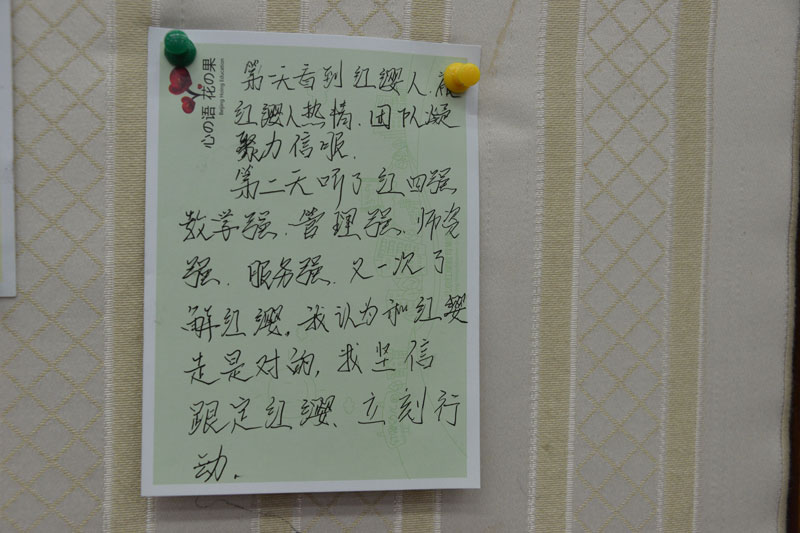 心の语 花の果
Beijing Hongying Education
第一天看到红缨人、
红缨人热情、团队凝
聚力信服、
第二天听了红四强
教学强、管理强、师资
强、服务强、又一次了
解红缨。我认为和红缨
走是对的，我坚信
跟定红缨、立刻行
动.